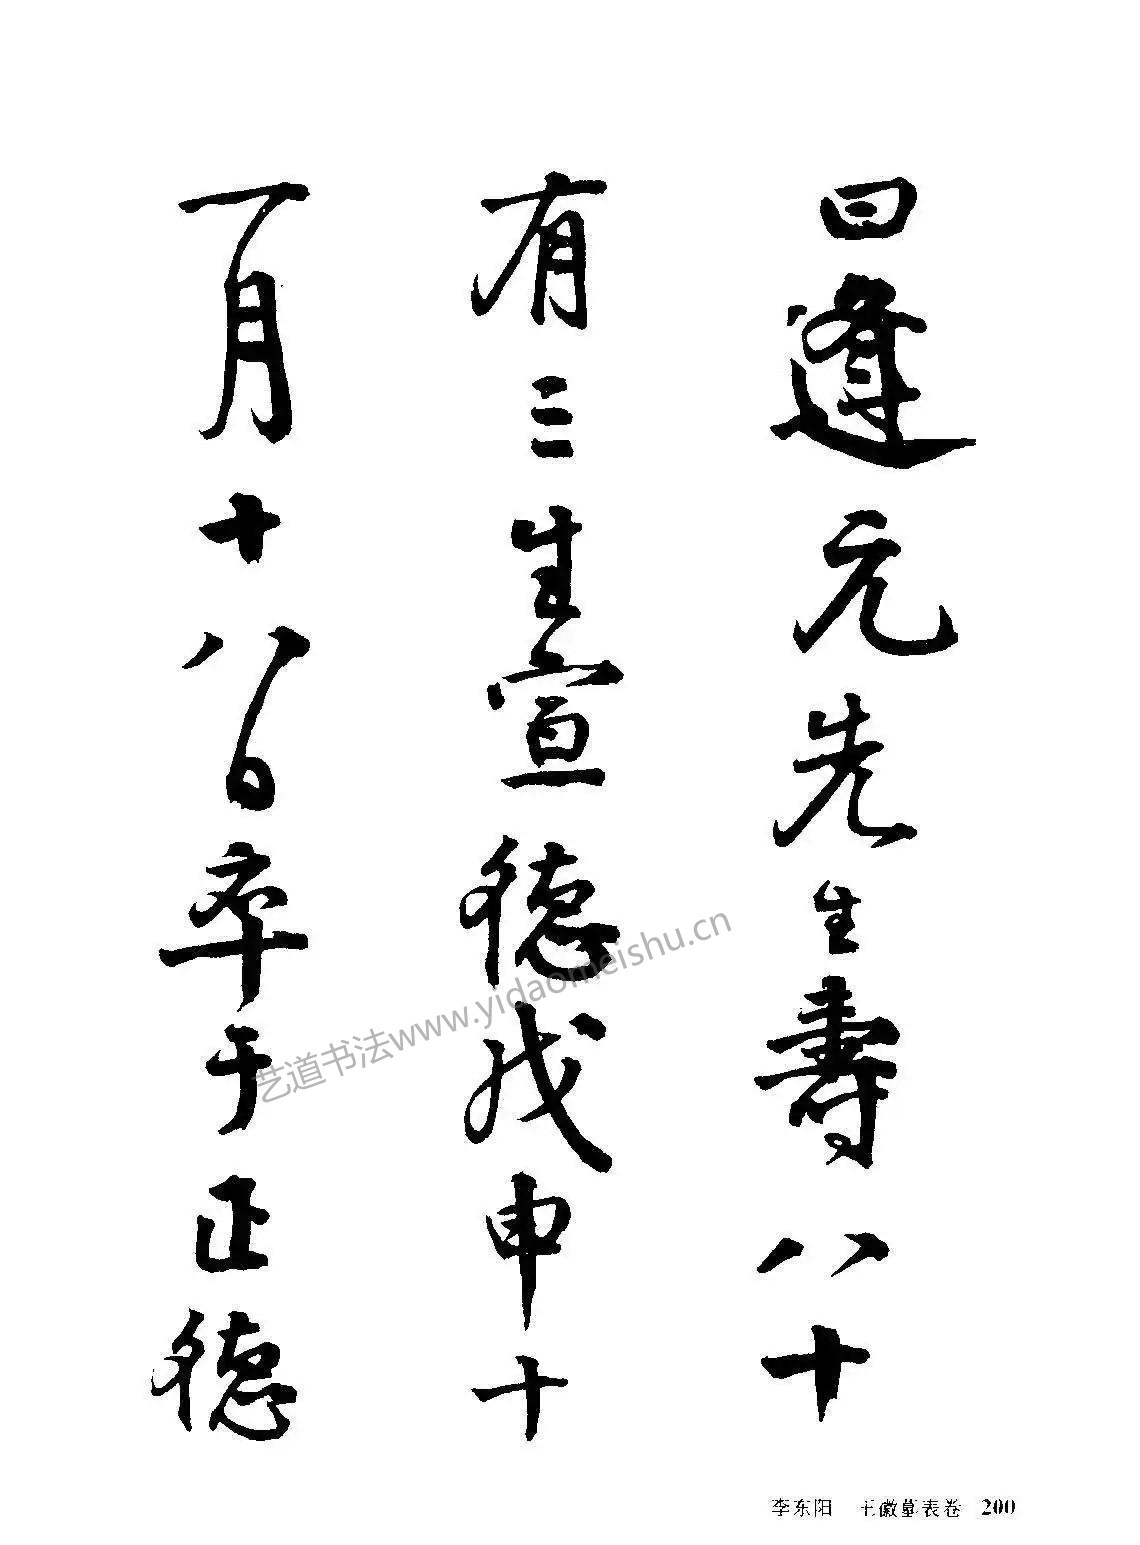 曰逢元先生壽八十
有三生宣德戊申十
一月十八日卒于正德
艺道书法www.yidaomeishu.cn
李东阳 王徽墓表卷 200